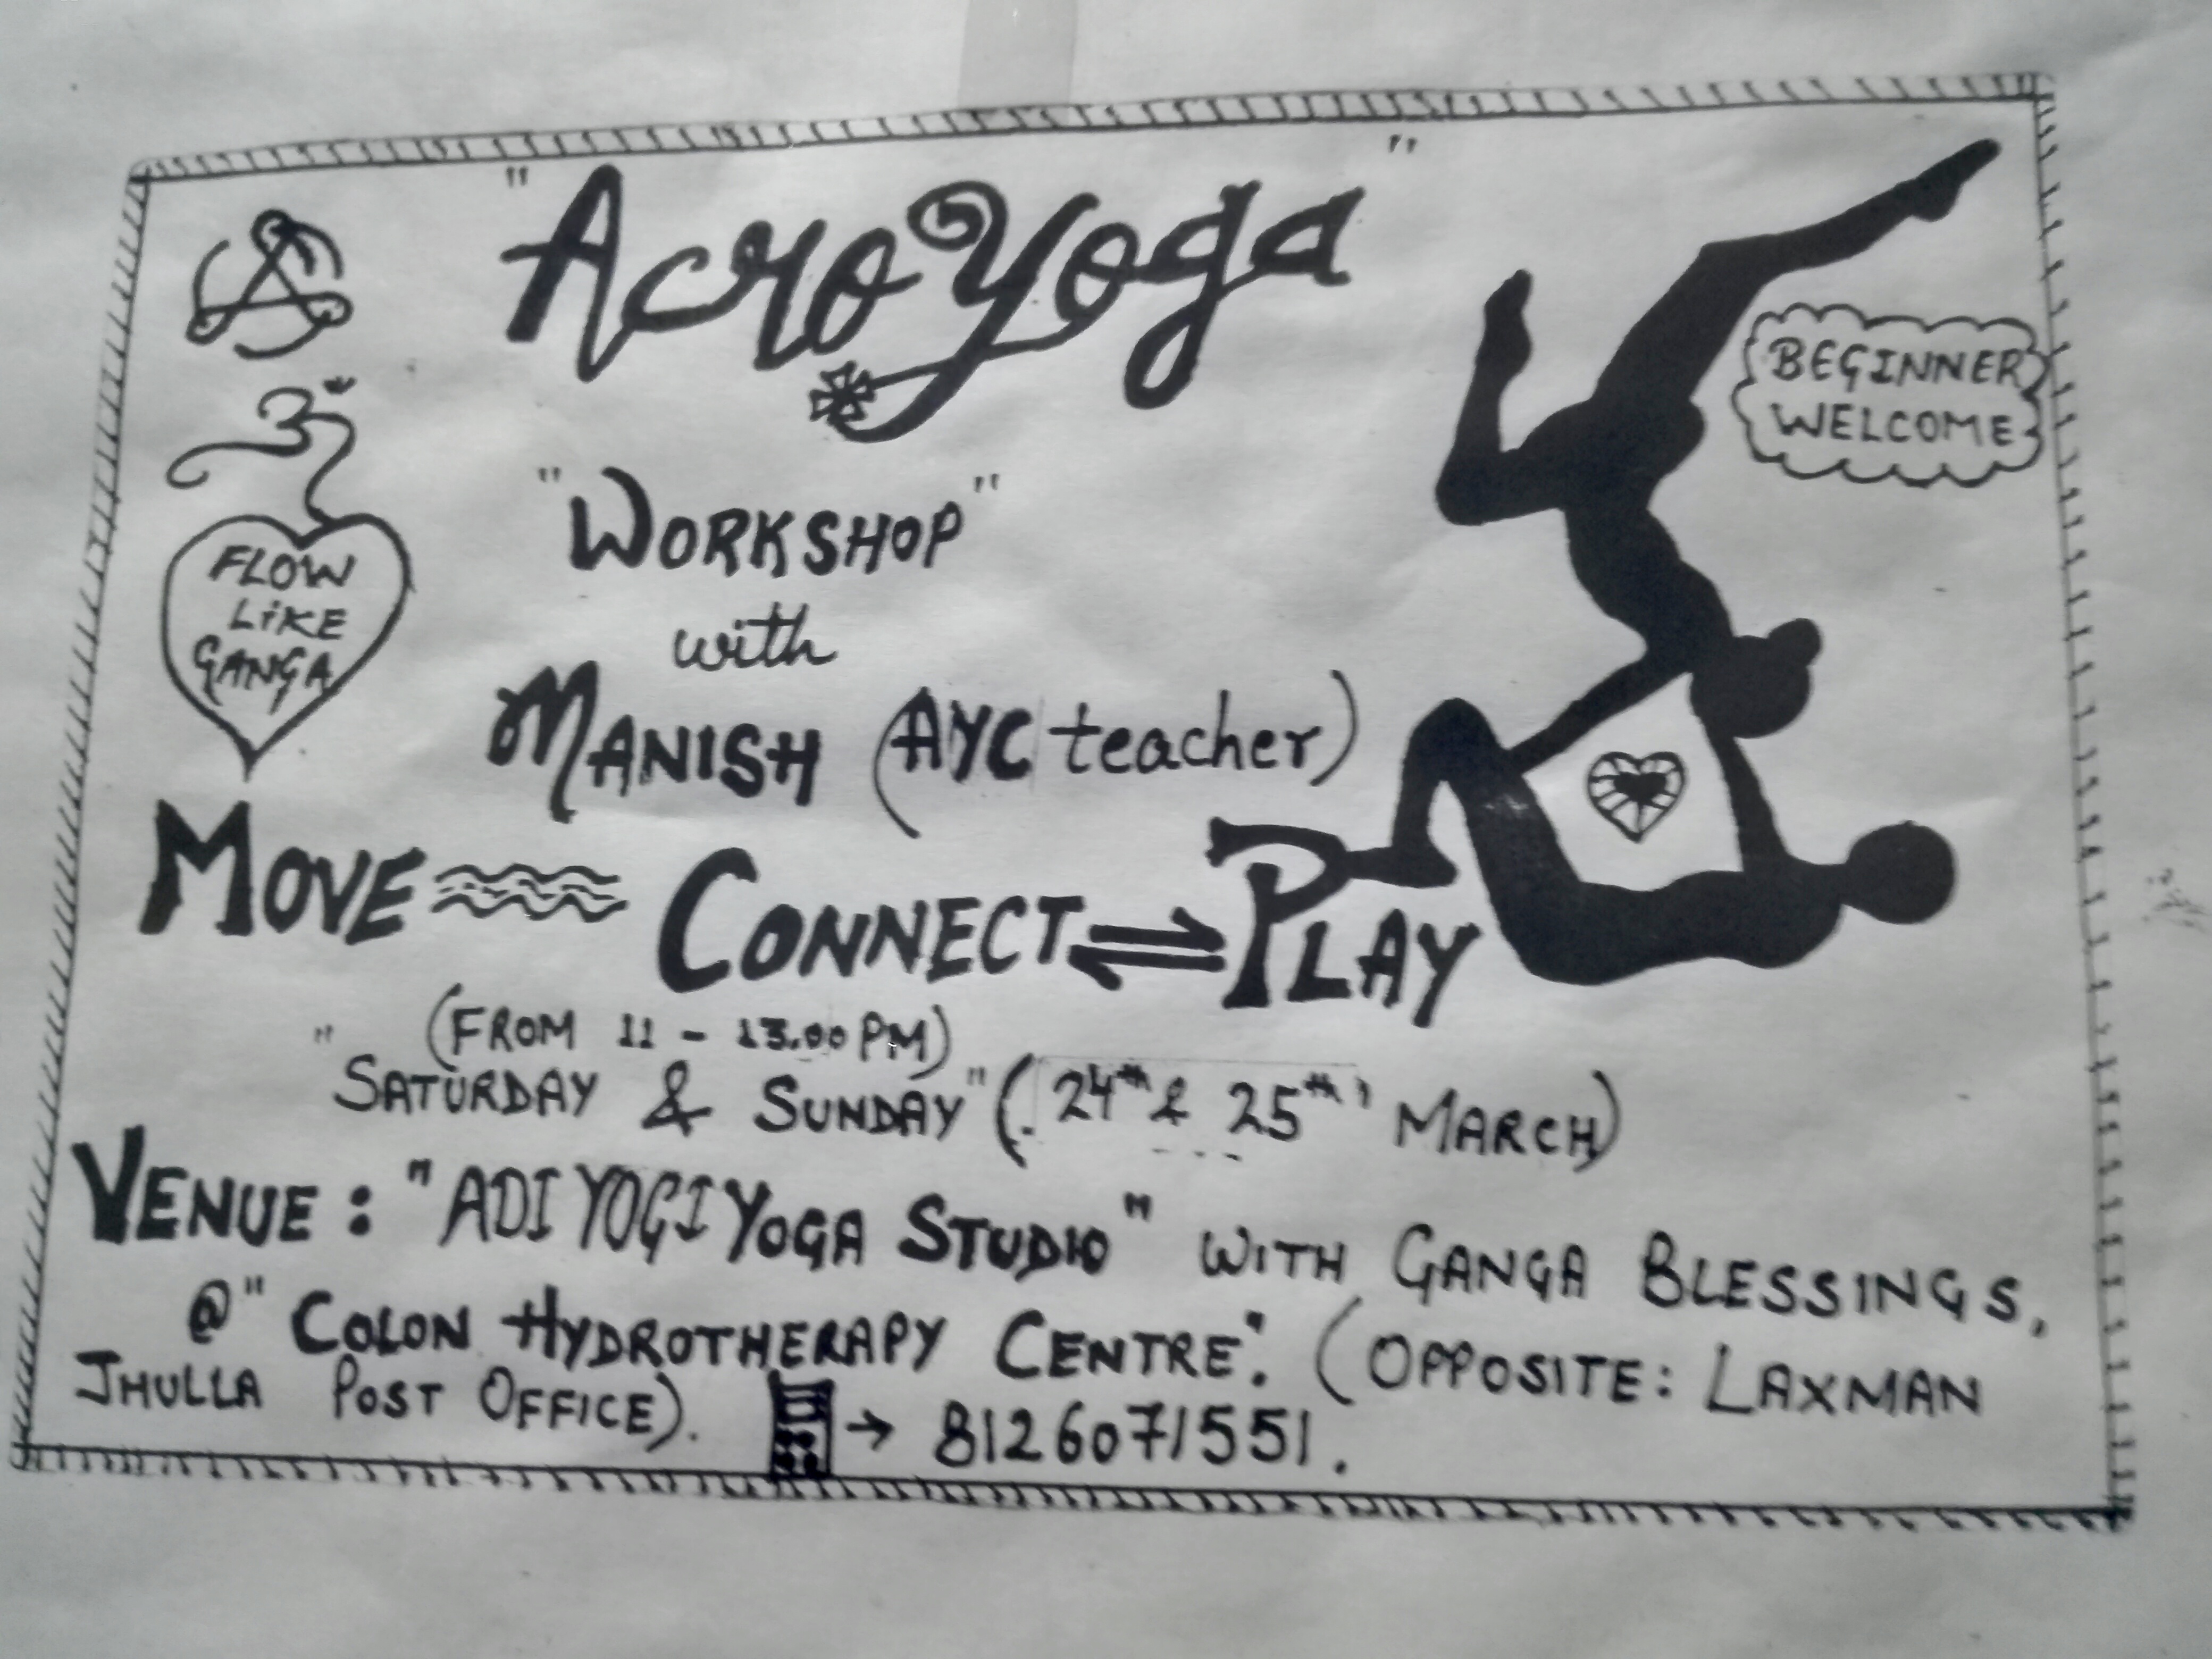 "AcroYoga"
BEGINNER
WELCOME
ॐ
FLOW
LIKE
GANGA
"WORKSHOP"
with
MANISH (AYC teacher)
MOVE CONNECT ⇌ PLAY
(FROM 11 - 13.00 PM)
"SATURDAY & SUNDAY" (24th & 25th MARCH)
VENUE: "ADI YOGI YOGA STUDIO" WITH GANGA BLESSINGS,
@ "COLON HYDROTHERAPY CENTRE". (OPPOSITE: LAXMAN
JHULLA POST OFFICE). → 8126071551.